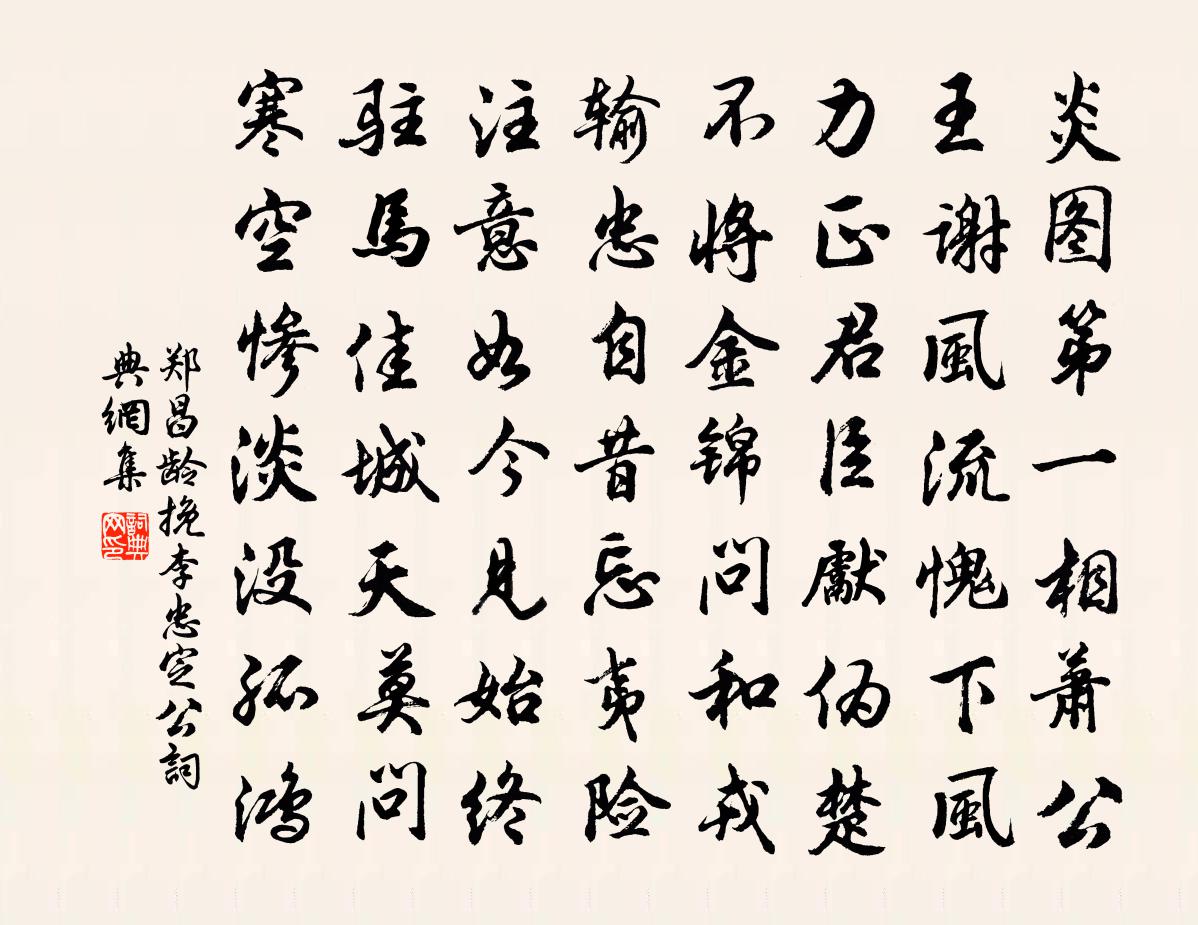 炎图第一相萧公
王谢風流愧下風
力正君臣獻伪楚
不将金锦问和戎
输忠自昔忘夷险
注意如今见始终
驻馬佳城天莫问
寒空惨淡没孤鸿
郑昌龄挽李忠定公詞
典網集
詞典网印